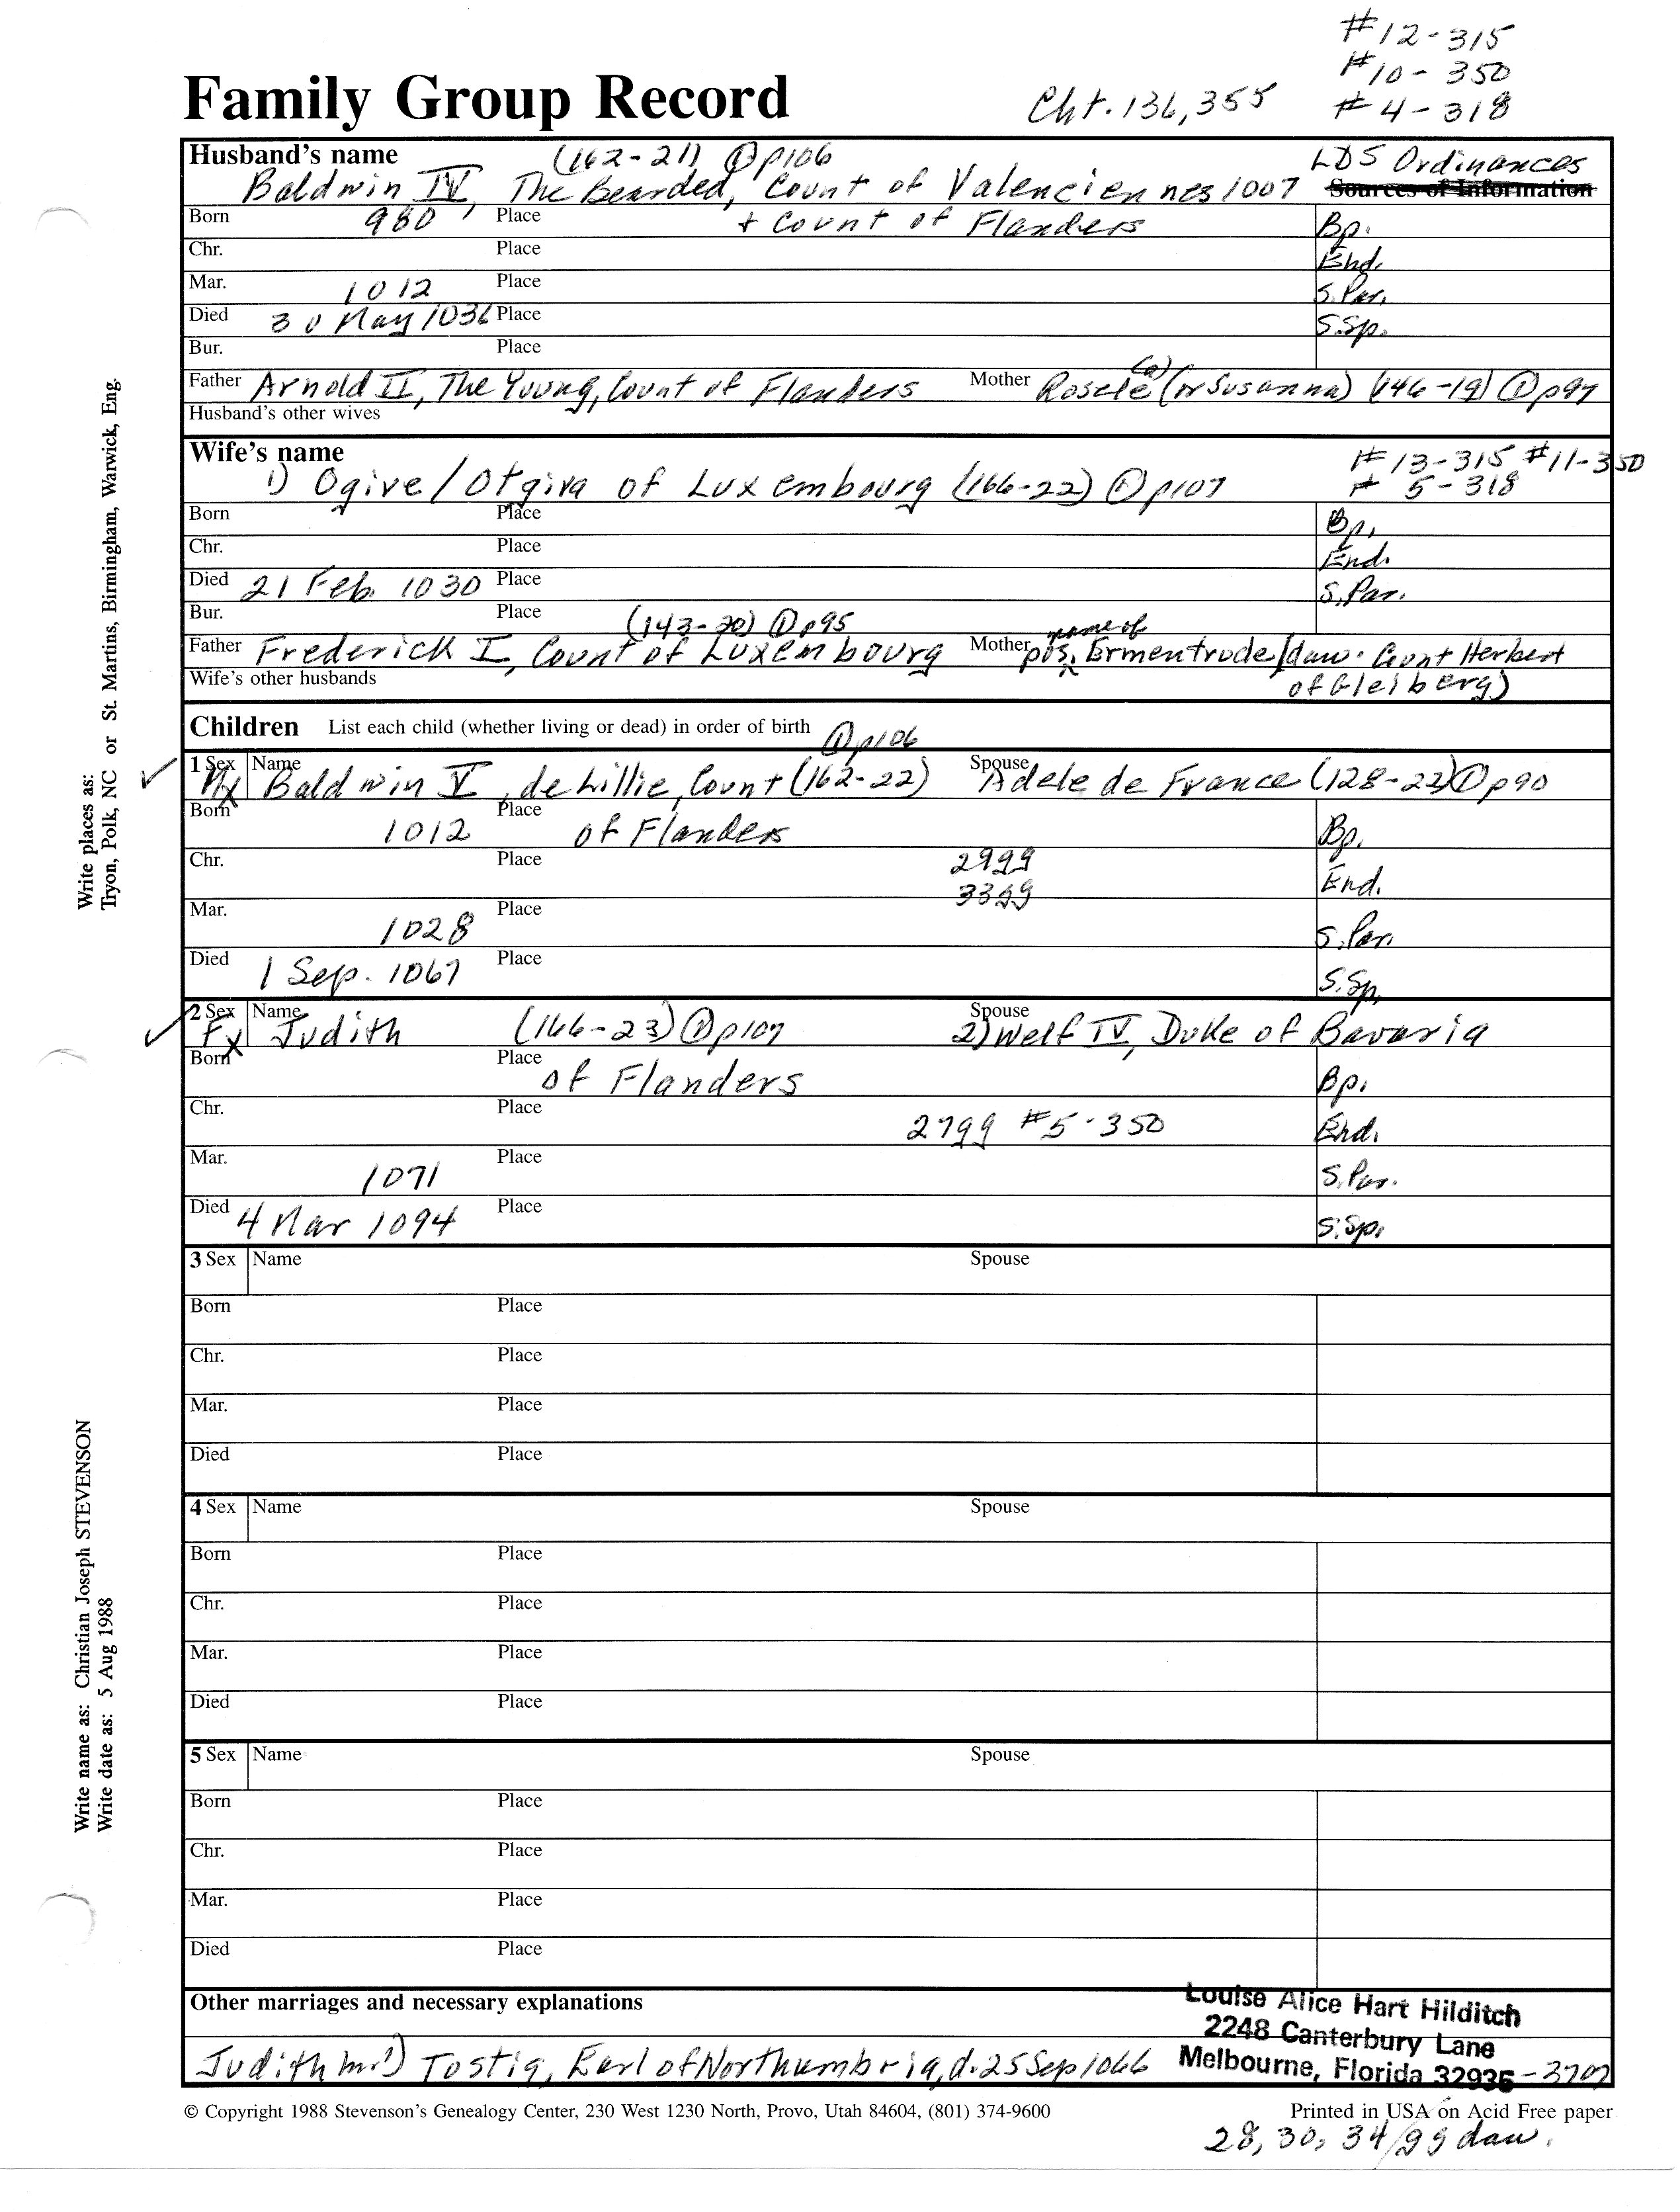 #12-315
#10-350
Family Group Record Cht. 136,355 #4-318
Husband's name (162-21) ① p106 LDS Ordinances
Baldwin IV, The Bearded, Count of Valenciennes 1007 Sources of Information
Born 980 Place + Count of Flanders Bp.
Chr. Place End.
Mar. 1012 Place S. Par.
Died 30 May 1036 Place S.Sp.
Bur. Place
Father Arnold II, The Young, Count of Flanders Mother Rosele (a) (or Susanna) (146-19) ① p97
Husband's other wives
Wife's name #13-315 #11-350
1) Ogive/Otgiva of Luxembourg (166-22) ① p107 # 5-318
Born Place Bp.
Chr. Place End.
Died 21 Feb. 1030 Place S. Par.
Bur. Place (143-20) ① p95
Father Frederick I, Count of Luxembourg Mother pos. name of Ermentrude (dau. Count Herbert
Wife's other husbands of Gleiberg)
Children List each child (whether living or dead) in order of birth ① p106
1 Sex Name Spouse
M x Baldwin V, de Lillie, Count (162-22) Adele de France (128-22) ① p90
Born 1012 Place of Flanders Bp.
Chr. Place 2999 End.
3399
Mar. 1028 Place S. Par.
Died 1 Sep. 1067 Place S.Sp.
2 Sex Name Spouse
F x Judith (166-23) ① p107 2) Welf IV, Duke of Bavaria
Born Place of Flanders Bp.
Chr. Place 2799 #5-350 End.
Mar. 1071 Place S. Par.
Died 4 Mar 1094 Place S. Sp.
3 Sex Name Spouse
Born Place
Chr. Place
Mar. Place
Died Place
4 Sex Name Spouse
Born Place
Chr. Place
Mar. Place
Died Place
5 Sex Name Spouse
Born Place
Chr. Place
Mar. Place
Died Place
Other marriages and necessary explanations
Judith m. 1) Tostig, Earl of Northumbria, d. 25 Sep 1066
Louise Alice Hart Hilditch
2248 Canterbury Lane
Melbourne, Florida 32935-3707
© Copyright 1988 Stevenson's Genealogy Center, 230 West 1230 North, Provo, Utah 84604, (801) 374-9600 Printed in USA on Acid Free paper
28, 30, 34/gg dau.
Write places as:
Tryon, Polk, NC or St. Martins, Birmingham, Warwick, Eng.
Write name as: Christian Joseph STEVENSON
Write date as: 5 Aug 1988